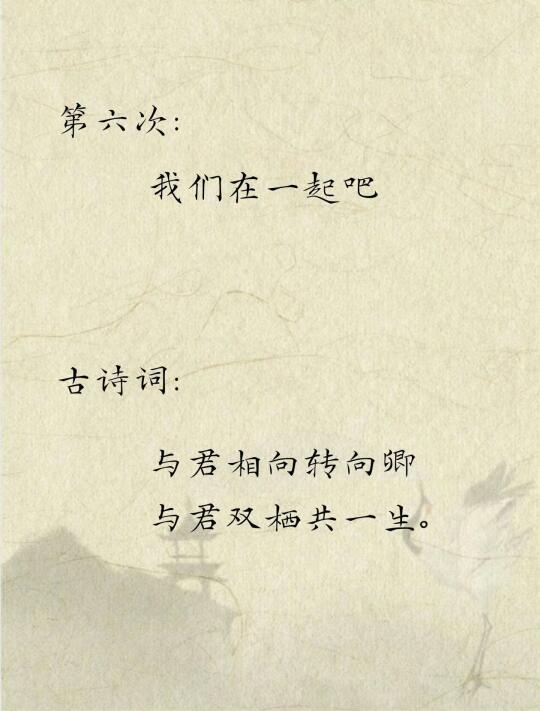 第六次:
我们在一起吧
古诗词:
与君相向转向卿
与君双栖共一生。